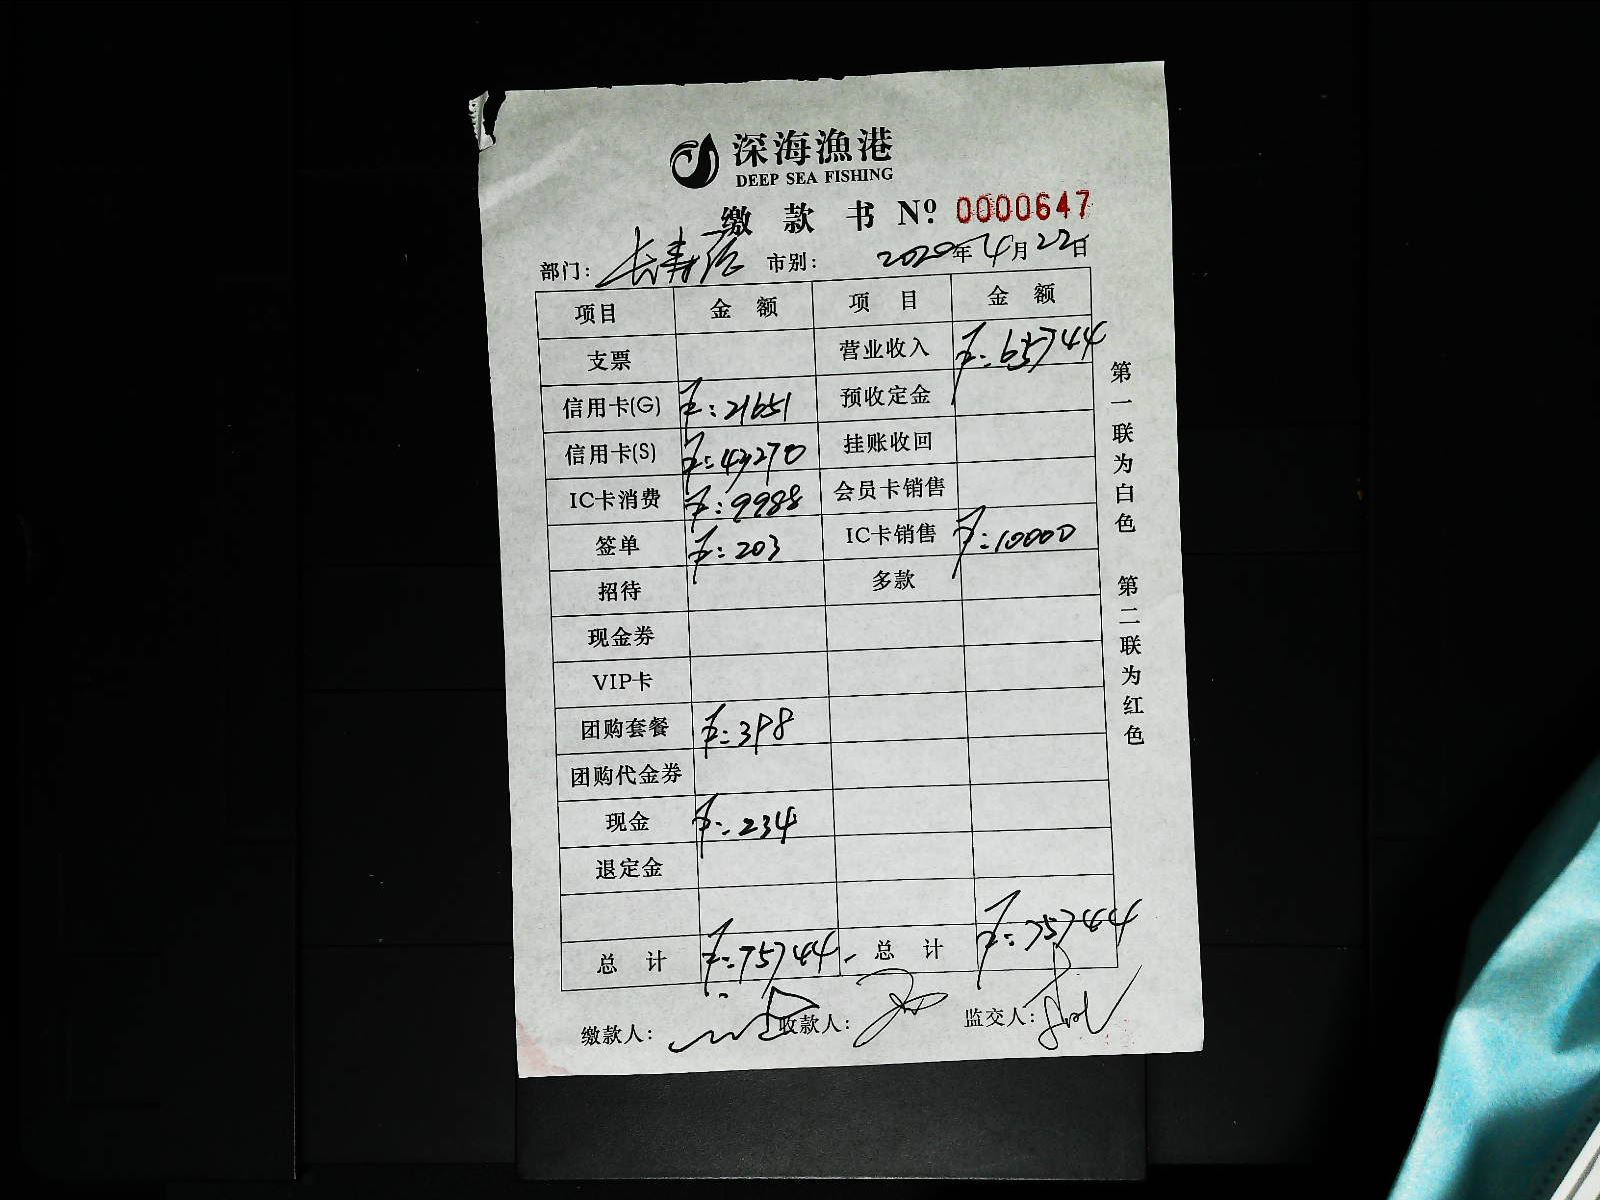 深海漁港
DEEP SEA FISHING
缴款书 Nº 0000647
部门: 长寿路 市别: 2020年4月22日
项目 金额 项目 金额
支票 营业收入 ¥:65744
信用卡(G) ¥:21651 预收定金
信用卡(S) ¥:43270 挂账收回
IC卡消费 ¥:9988 会员卡销售
签单 ¥:203 IC卡销售 ¥:10000
招待 多款
现金券
VIP卡
团购套餐 ¥:398
团购代金券
现金 ¥:234
退定金
总计 ¥:75744 总计 ¥:75744
缴款人: 收款人: 监交人:
第一联为白色 第二联为红色